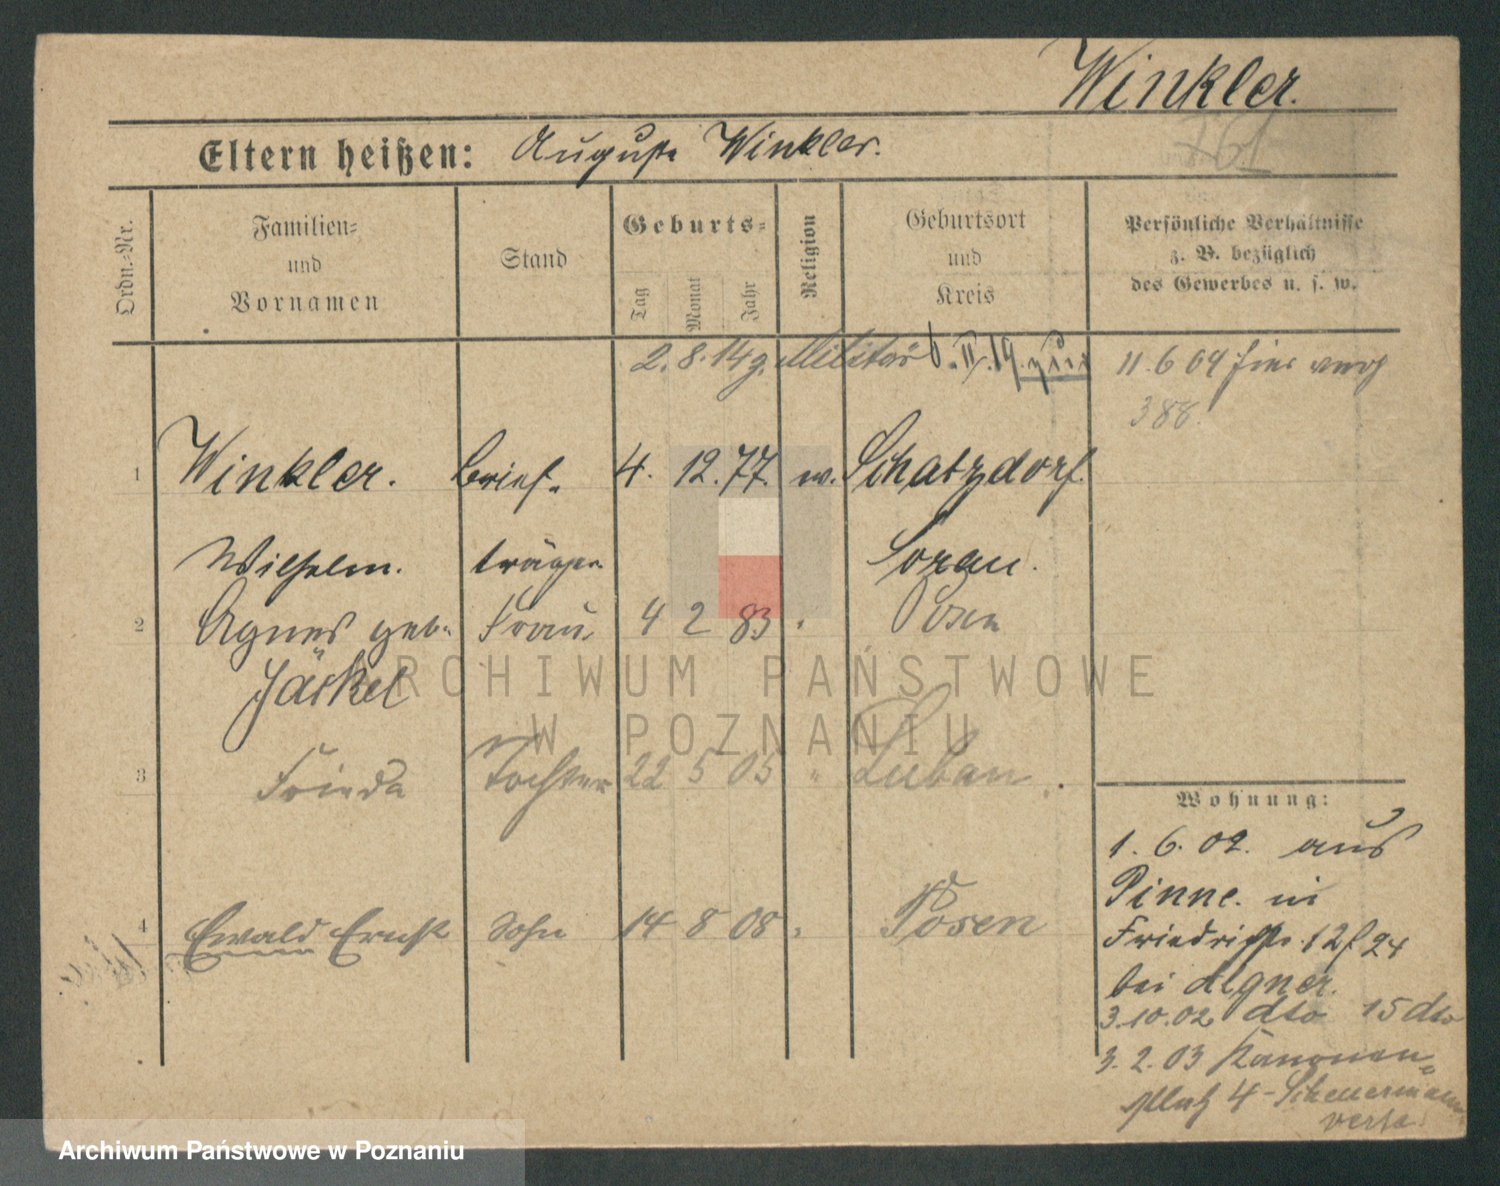 Winkler.
761
Eltern heißen: Auguste Winkler.
Ordn.-Nr.
Familien-
und
Vornamen
Stand
Geburts-
Tag
Monat
Jahr
Religion
Geburtsort
und
Kreis
Persönliche Verhältnisse
z. B. bezüglich
des Gewerbes u. s. w.
2.8.14 z. Militär 6.II.19.
11.6 04
388.
1 Winkler. Brief- 4. 12. 77. ev. Schatzdorf.
Wilhelm. träger Sorau.
2 Agnes geb. Frau 4 2 83 Posen
Jäckel
3 Frieda Tochter 22 5 05 " Luban
4 Ewald Ernst Sohn 14 8 08 Posen
Wohnung:
1. 6. 02. aus
Pinne. in
Friedrichstr. 12
bei Aigner.
3.10.02 dto 15 dto
3.2.03 Kanonen-
platz 4 - Scheuermann
ARCHIWUM PAŃSTWOWE
W POZNANIU
Archiwum Państwowe w Poznaniu